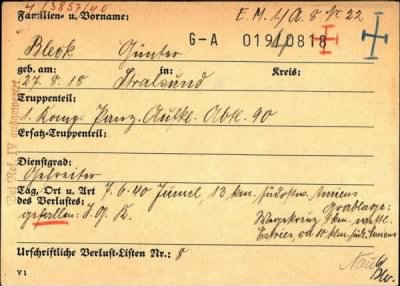 4/3857/40
Familien- u. Vorname:
E. M. 1/A. 8 Nr. 22
Bleek Günter
G-A 0191/0818
geb. am: in: Kreis:
27.8.18 Stralsund
Truppenteil:
1. Komp. Panz. Aufkl. Abt. 90
Ersatz-Truppenteil:
Dienstgrad:
Gefreiter
Tag, Ort u. Art des Verlustes:
7.6.40 Jumel, 13 km. südostw. Amiens
gefallen: I. G. K.
Grablage:
Wegekreuz 1 km. westl.
Estrées, 10 km. südl. Amiens
Urschriftliche Verlust-Listen Nr.: 8
V 1